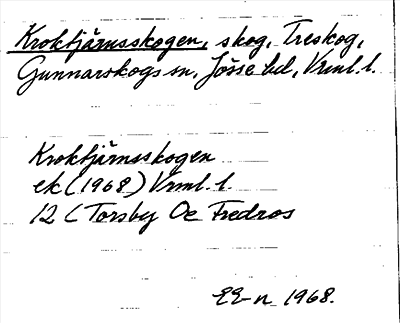 Kroktjärnsskogen, skog, Treskog,
Gunnarskogs sn, Jösse hd, Vrml. l.
Kroktjärnsskogen
ek (1968) Vrml. l.
12 C Torsby Öe Fredros
1968.